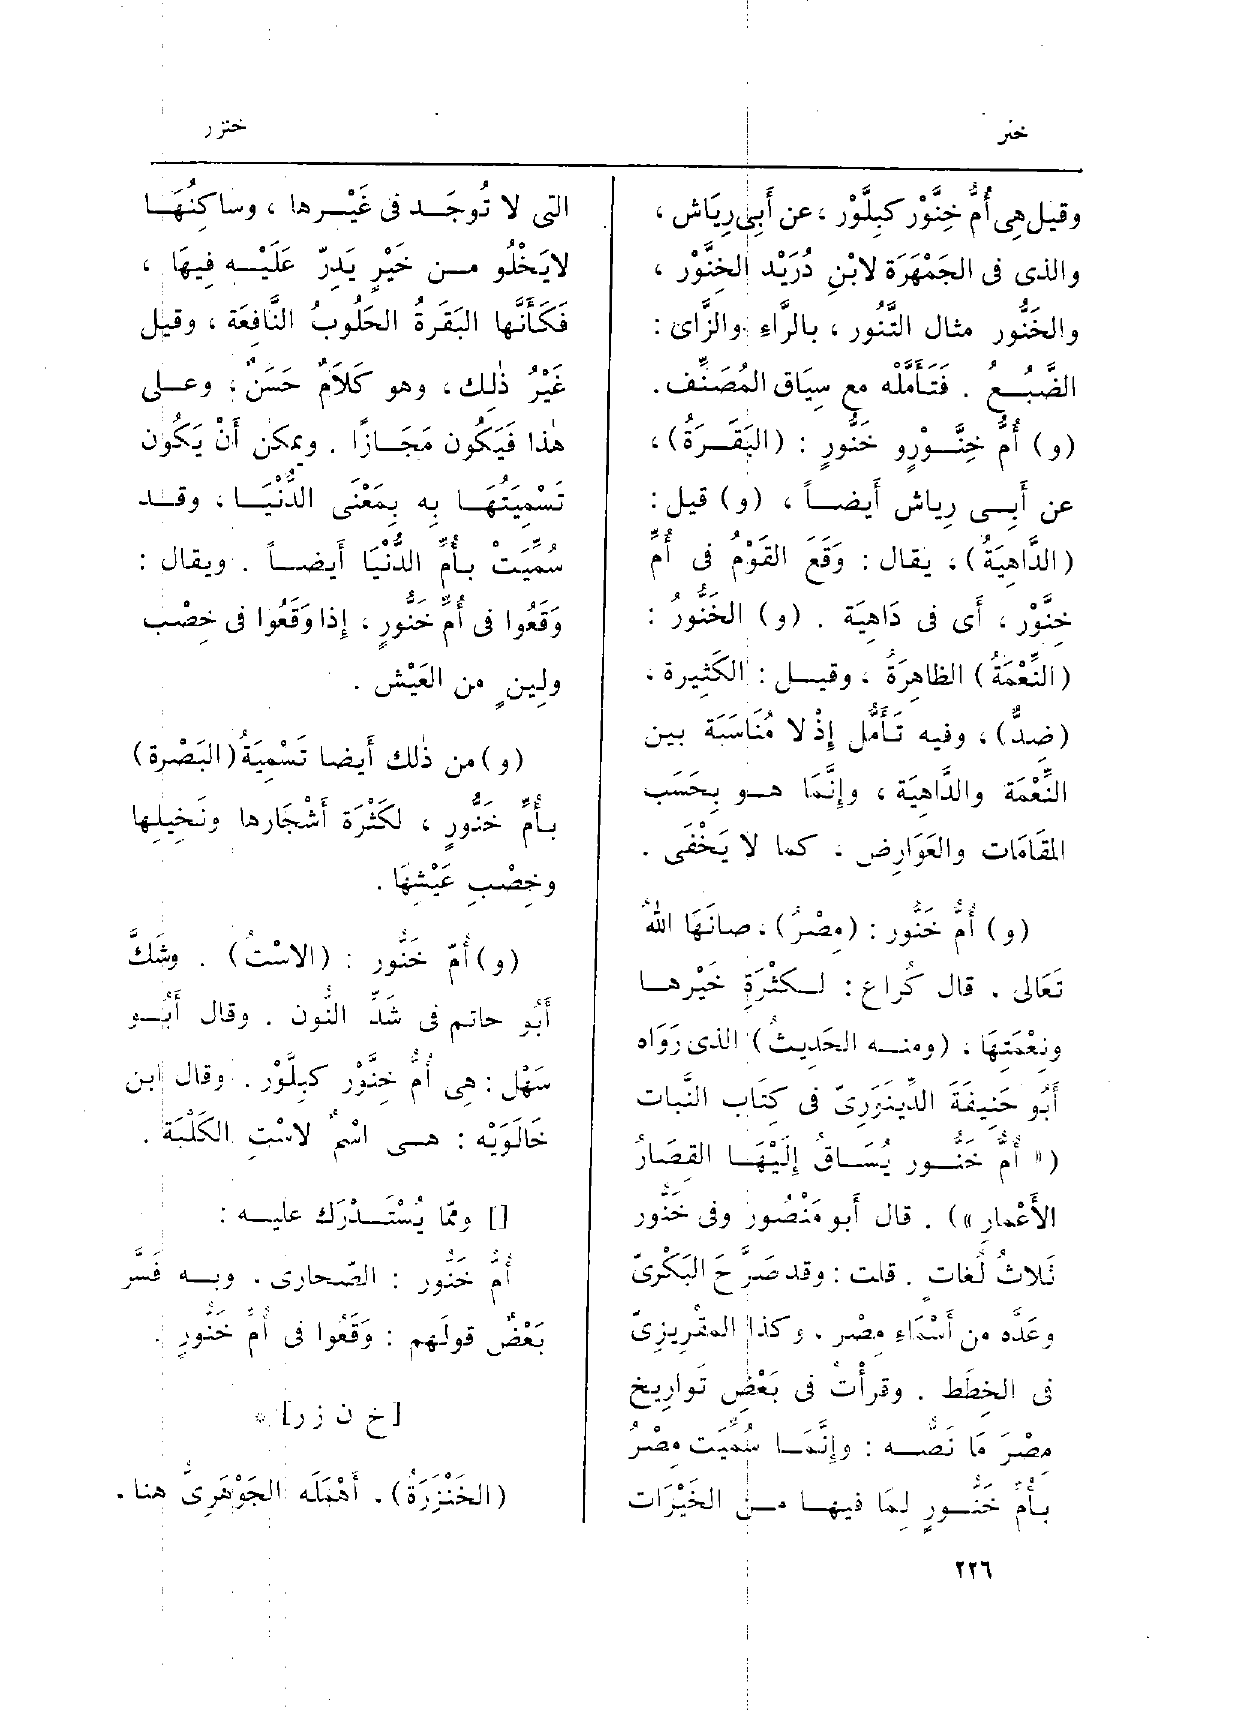 خنر
خنزر
وقيل هِى أُمُّ خِنَّوْر كبِلَّوْر ، عن أَبِى رِيَاش ،
والذى فى الجَمْهَرَة لابْنِ دُرَيْد الخِنَّوْر ،
والخَنُّور مثال التَّنُّور ، بالرَّاءِ والزَّاى :
الضَّبُعُ . فَتَأَمَّلْه مع سِيَاق المُصَنِّف .
(و) أُمُّ خِنَّوْرٍ و خَنُّورٍ : (البَقَرَةُ) ،
عن أَبِى رِياش أَيضاً ، (و) قيل :
(الدَّاهِيَةُ) ، يقال : وَقَعَ القَوْمُ فى أُمِّ
خِنَّوْر ، أَى فى دَاهِيَة . (و) الخَنُّورُ :
(النِّعْمَةُ) الظاهِرَةُ ، وقيل : الكَثِيرة ،
(ضِدٌّ) ، وفيه تَأَمُّل إِذْ لا مُنَاسَبَة بين
النِّعْمَة والدَّاهِيَة ، وإِنَّمَا هو بِحَسَب
المَقَامَات والعَوَارِض ، كما لا يَخْفَى .
(و) أُمُّ خَنُّور : (مِصْرُ) ، صانَهَا اللهُ
تَعَالى . قال كُراع : لكَثْرَةِ خَيْرها
ونِعْمَتِهَا ، (ومنه الحَدِيثُ) الذى رَوَاه
أَبُو حَنِيفَةَ الدِّينَوَرِىّ فى كِتَاب النَّبات
(« أُمُّ خَنُّور يُسَاقُ إِلَيْهَا القِصَارُ
الأَعْمارِ ») . قال أَبو مَنْصُور وفى خَنُّور
ثَلاثُ لُغاتٍ . قلت : وقد صَرَّحَ البَكْرِىّ
وعَدَّه من أَسْمَاءِ مِصْر . وكذا المقْرِيزِىّ
فى الخِطَط . وقرأْت فى بَعْضِ تواريخ
مِصْرَ مَا نَصُّه : وإِنَّمَا سُمِّيَت مِصْرُ
بأُمِّ خَنُّورٍ لِمَا فيها من الخَيْرَات
التى لا تُوجَد فى غَيْرها ، وساكِنُهَا
لايَخْلُو من خَيْرٍ يَدِرّ عَلَيْه فِيهَا ،
فَكَأَنَّها البَقَرَةُ الحَلُوبُ النَّافِعَة ، وقيل
غَيْرُ ذٰلِك ، وهو كَلَامٌ حَسَنٌ ؛ وعلى
هٰذا فَيَكُون مَجَازًا . ويمكن أَنْ يَكُون
تَسْمِيَتُهَا بِهِ بِمَعْنَى الدُّنْيَا ، وقد
سُمِّيَتْ بأُمِّ الدُّنْيَا أَيضاً . ويقال :
وَقَعُوا فى أُمِّ خَنُّورٍ ، إِذا وَقَعُوا فى خِصْب
ولِينٍ من العَيْش .
(و) من ذٰلك أَيضا تَسْمِيَةُ (البَصْرة)
بأُمِّ خَنُّورٍ ، لكَثْرَة أَشْجَارها ونَخِيلِها
وخِصْبِ عَيْشِهَا .
(و) أُمّ خَنُّور : (الاسْتُ) . وشَكَّ
أَبُو حاتم فى شَدِّ النُّون . وقال أَبُو
سَهْل : هِى أُمُّ خِنَّوْر كبِلَّوْر . وقال ابن
خَالَوَيْه : هى اسْمٌ لاسْتِ الكَلْبَة .
[] وممّا يُسْتَدْرَك عليه :
أُمُّ خَنُّور : الصّحارى . وبه فَسَّر
بَعْضٌ قولَهم : وَقَعُوا فى أُمِّ خَنُّورٍ .
[خ ن ز ر] *
(الخَنْزَرَةُ) . أَهْمَلَه الجَوْهَرِىُّ هنا .
٢٢٦